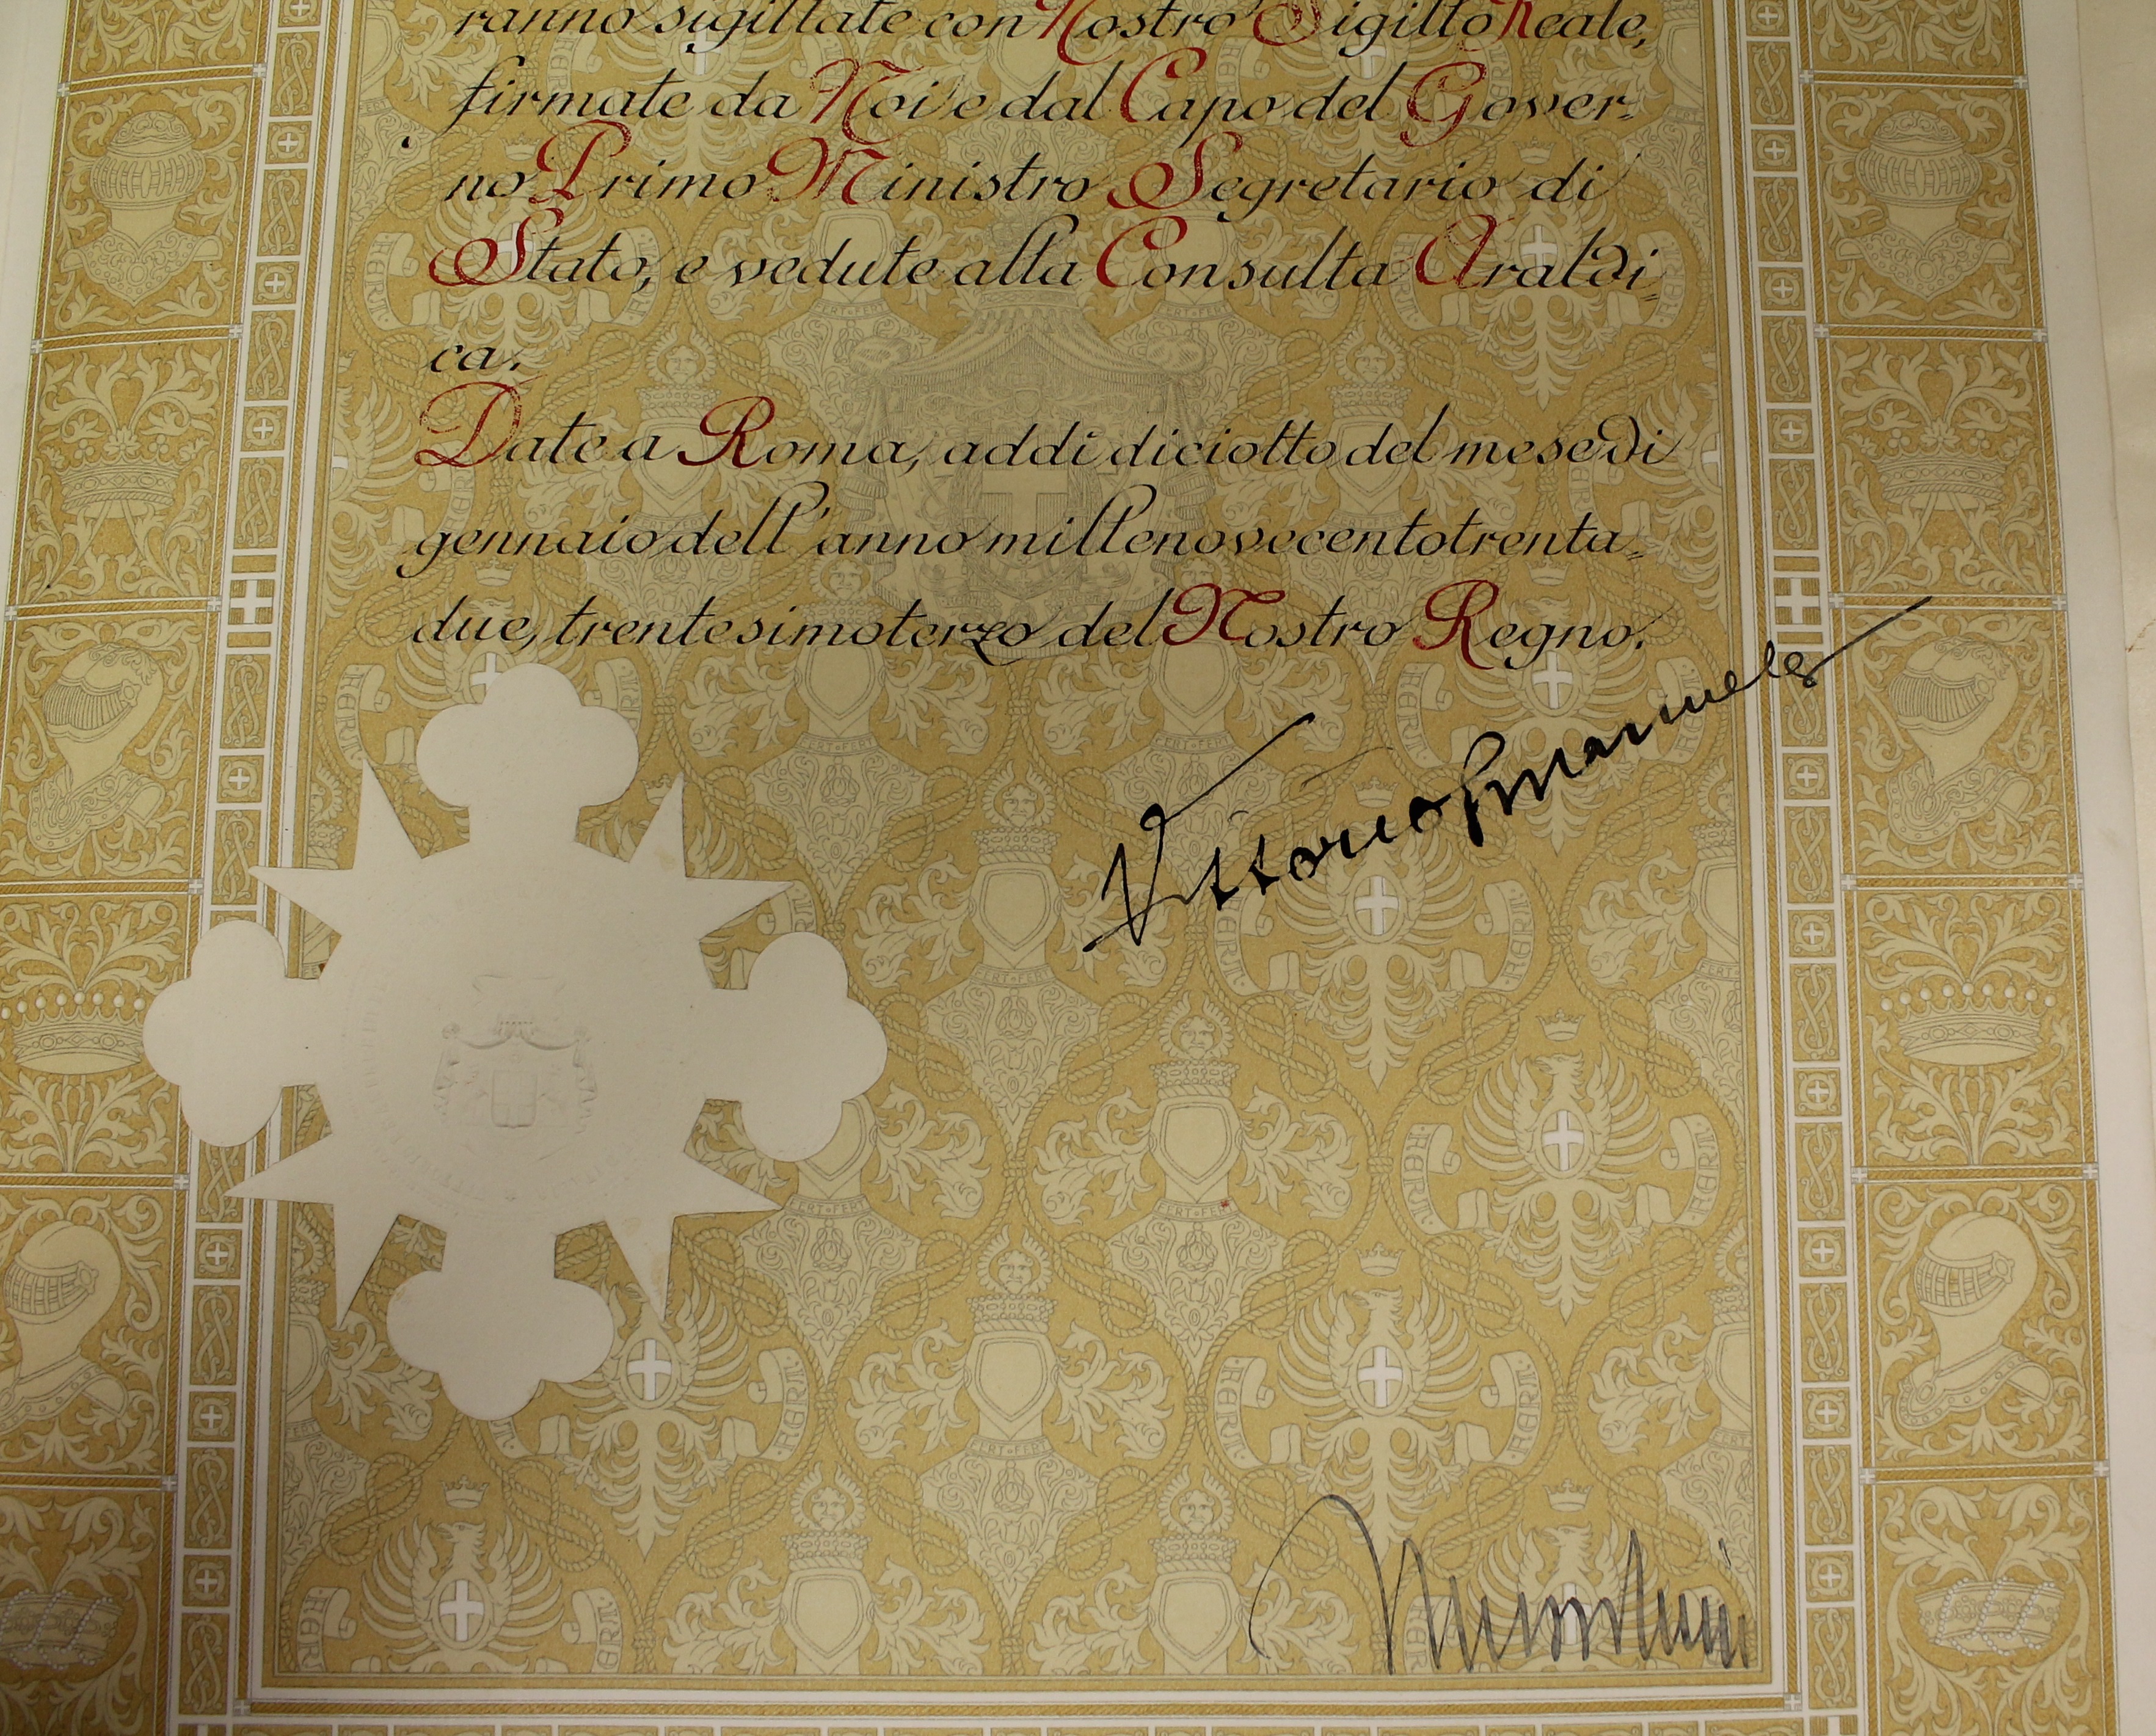 ranno sigillate con Nostro Sigillo Reale,
firmate da Noi e dal Capo del Gover-
no Primo Ministro Segretario di
Stato, e vedute alla Consulta Araldi-
ca.
Date a Roma, addì diciotto del mese di
gennaio dell'anno millenovecentotrenta-
due, trentesimoterzo del Nostro Regno.
Vittorio Emanuele
Mussolini
FERT FERT